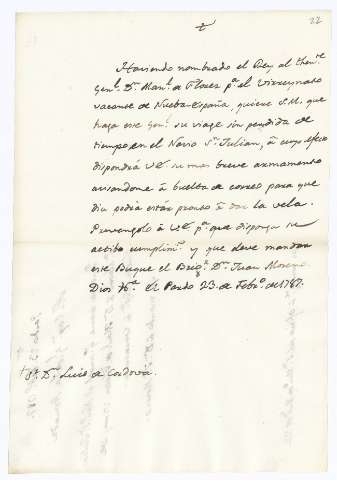 22
Haviendo nombrado el Rey al Then.te
Gen.l D.n Man.l de Flores p.a el Virreynato
vacante de Nueba España, quiere S.M. que
haga este Gen.l su viage sin perdida de
tiempo en el Navio S.n Julian, à cuyo efecto
dispondrá VE su mas breve armamento
avisandome à buelta de correo para que
dia podia estar pronto à dar la vela.
Prevengolo à VE p.a que disponga su
activo cumplim.to y que deve mandar
este Buque el Brig.r D.n Juan Moreno.
Dios &.a El Pardo 23 de Febr.o de 1787.
S.r D.n Luis de Cordova.